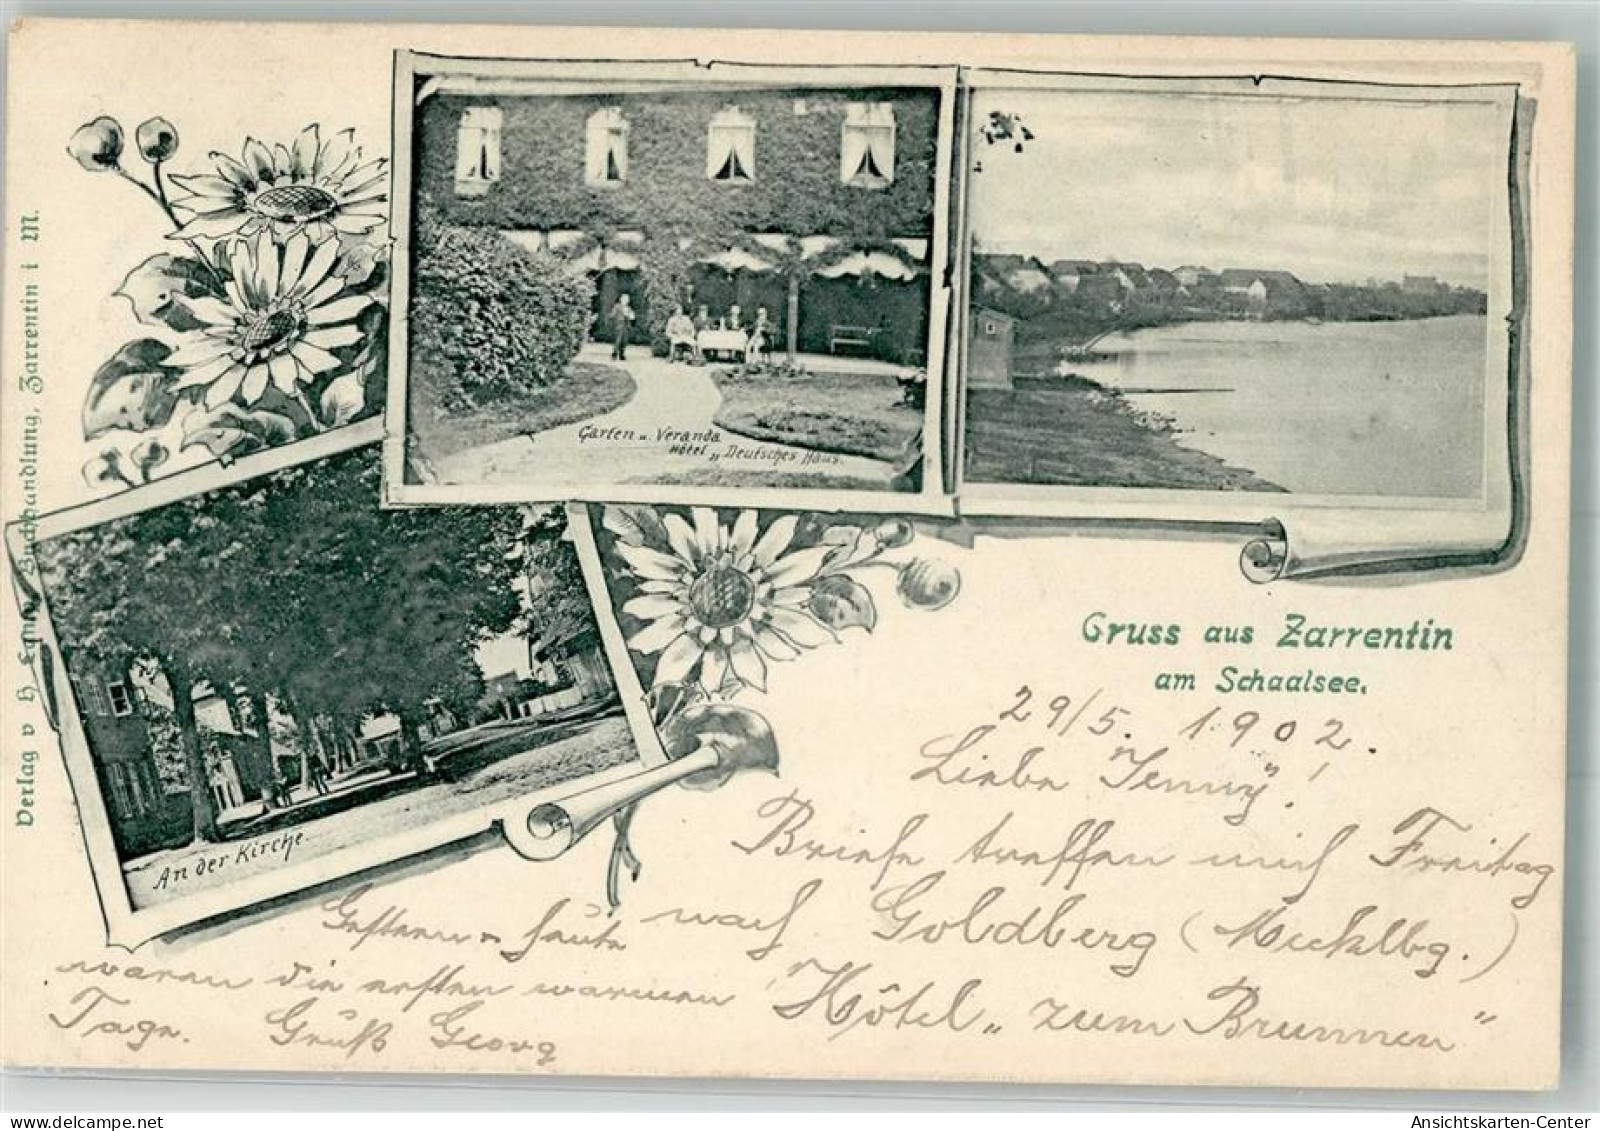 Verlag v H Buchhandlung, Zarrentin i M.
Garten u. Veranda
Hôtel „Deutsches Haus.
An der Kirche.
Gruss aus Zarrentin
am Schaalsee.
29/5. 1902.
Liebe Jenny!
Briefe treffen mich Freitag
nach Goldberg (Mecklbg.)
Hôtel „zum Brunnen"
Gestern u heute
waren die ersten warmen
Tage. Gruß Georg
Ansichtskarten-Center